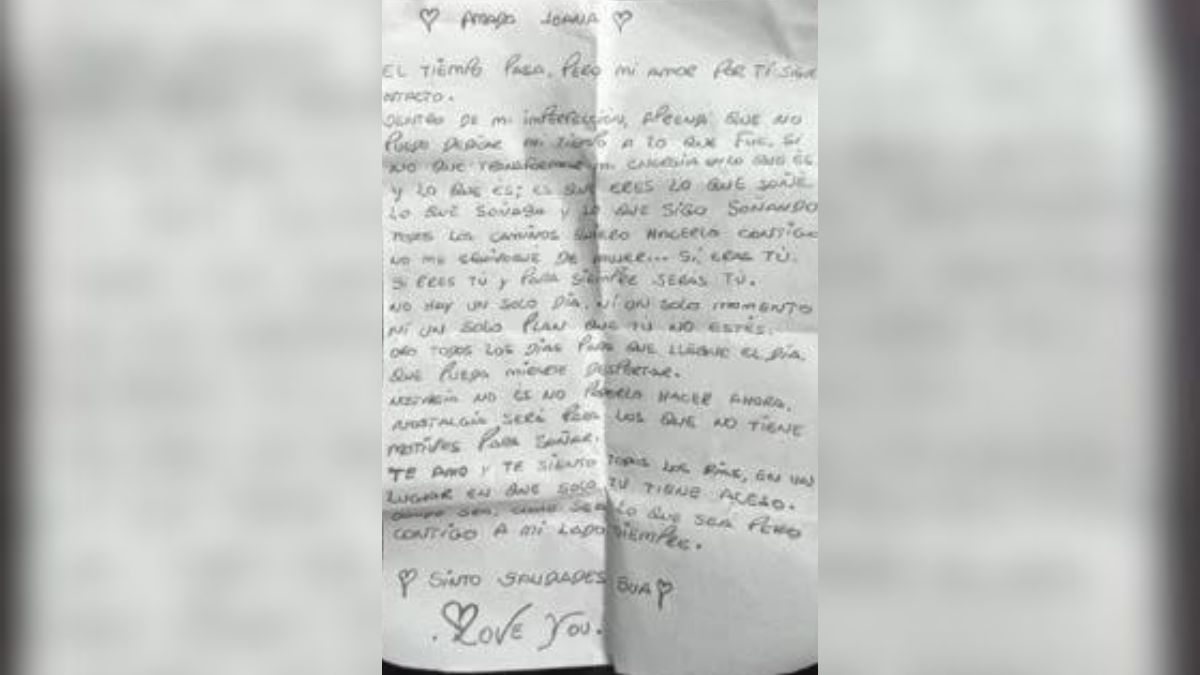 ♡ AMADA JOANA ♡
EL TIEMPO PASA, PERO MI AMOR POR TÍ SIGUE
INTACTO.
DENTRO DE MI IMPERFECCIÓN, APRENDÍ QUE NO
PUEDO DEDICAR MI TIEMPO A LO QUE FUE, SÍ
NO QUE TRANSFORMAR MI ENERGÍA EN LO QUE ÉS
Y LO QUE ES; ES QUE ERES LO QUE SOÑE
LO QUE SOÑABA Y LO QUE SIGO SOÑANDO
TODOS LOS CAMINOS QUIERO HACERLA CONTIGO
NO ME EQUIVOQUÉ DE MUJER... SÍ ERAS TÚ.
SI ERES TÚ Y PARA SIEMPRE SERÁS TÚ.
NO HAY UN SOLO DÍA, NÍ UN SOLO MOMENTO
NÍ UN SOLO PLAN QUE TÚ NO ESTÉS.
ORO TODOS LOS DÍAS PARA QUE LLEGUE EL DÍA
QUE PUEDA DESPERTAR.
NO ÉS NO PODERLA HACER AHORA,
NOSTALGÍA SERÁ PARA LOS QUE NO TIENE
MOTIVOS PARA SOÑAR.
TE AMO Y TE SIENTO TODOS LOS DÍAS, EN UN
LUGAR EN QUE SOLO TU TIENE ACESO.
SEA, COMO SEA LO QUE SEA PERO
CONTIGO A MI LADO SIEMPRE.
♡ SINTO SAUDADES SUA ♡
. LOVE YOU.